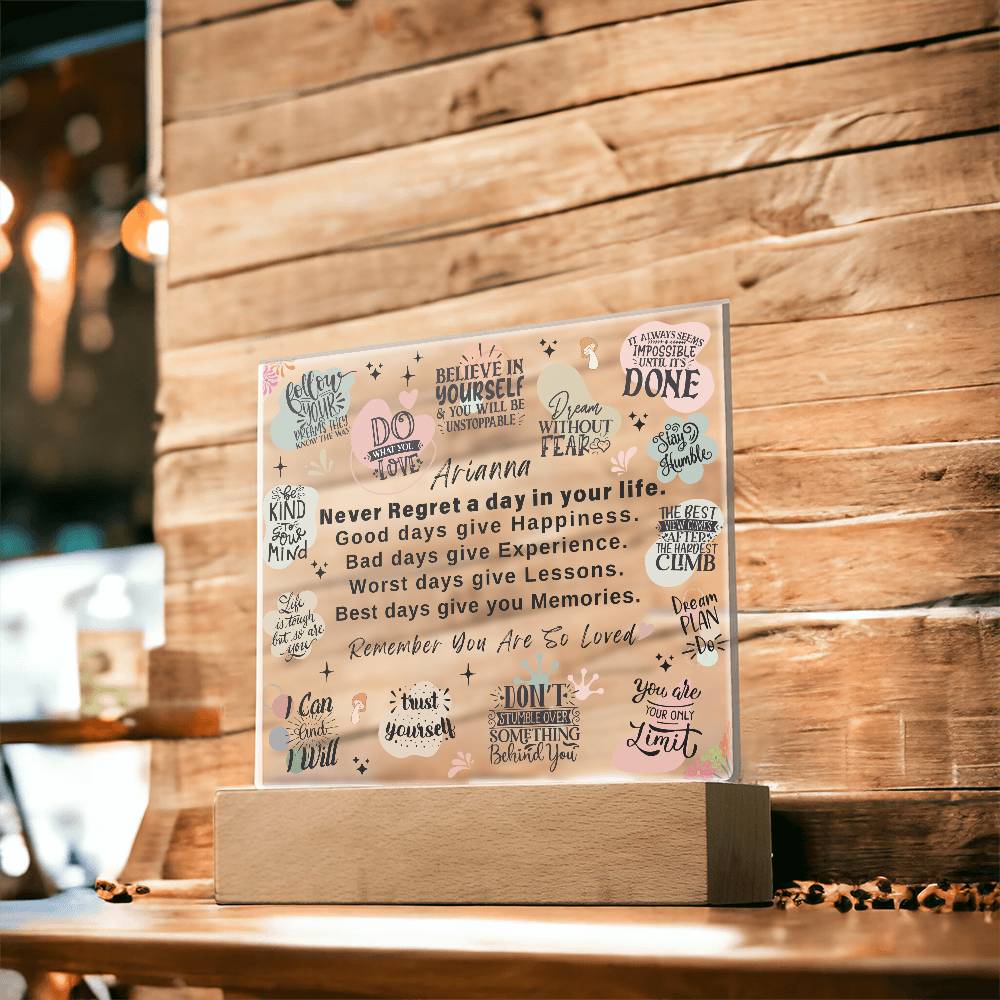 follow
YOUR
DREAMS THEY
KNOW THE WAY
DO
WHAT YOU
LOVE
BELIEVE IN
YOURSELF
& YOU WILL BE
UNSTOPPABLE
Dream
WITHOUT
FEAR
IT ALWAYS SEEMS
IMPOSSIBLE
UNTIL IT'S
DONE
Stay
Humble
be
KIND
to
your
MIND
Arianna
Never Regret a day in your life.
Good days give Happiness.
Bad days give Experience.
Worst days give Lessons.
Best days give you Memories.
Remember You Are So Loved
THE BEST
VIEW COMES
AFTER
THE HARDEST
CLIMB
Life
is tough
but so are
you
Dream
PLAN
Do
I Can
and
I Will
trust
yourself
DON'T
STUMBLE OVER
SOMETHING
Behind You
You are
YOUR ONLY
Limit